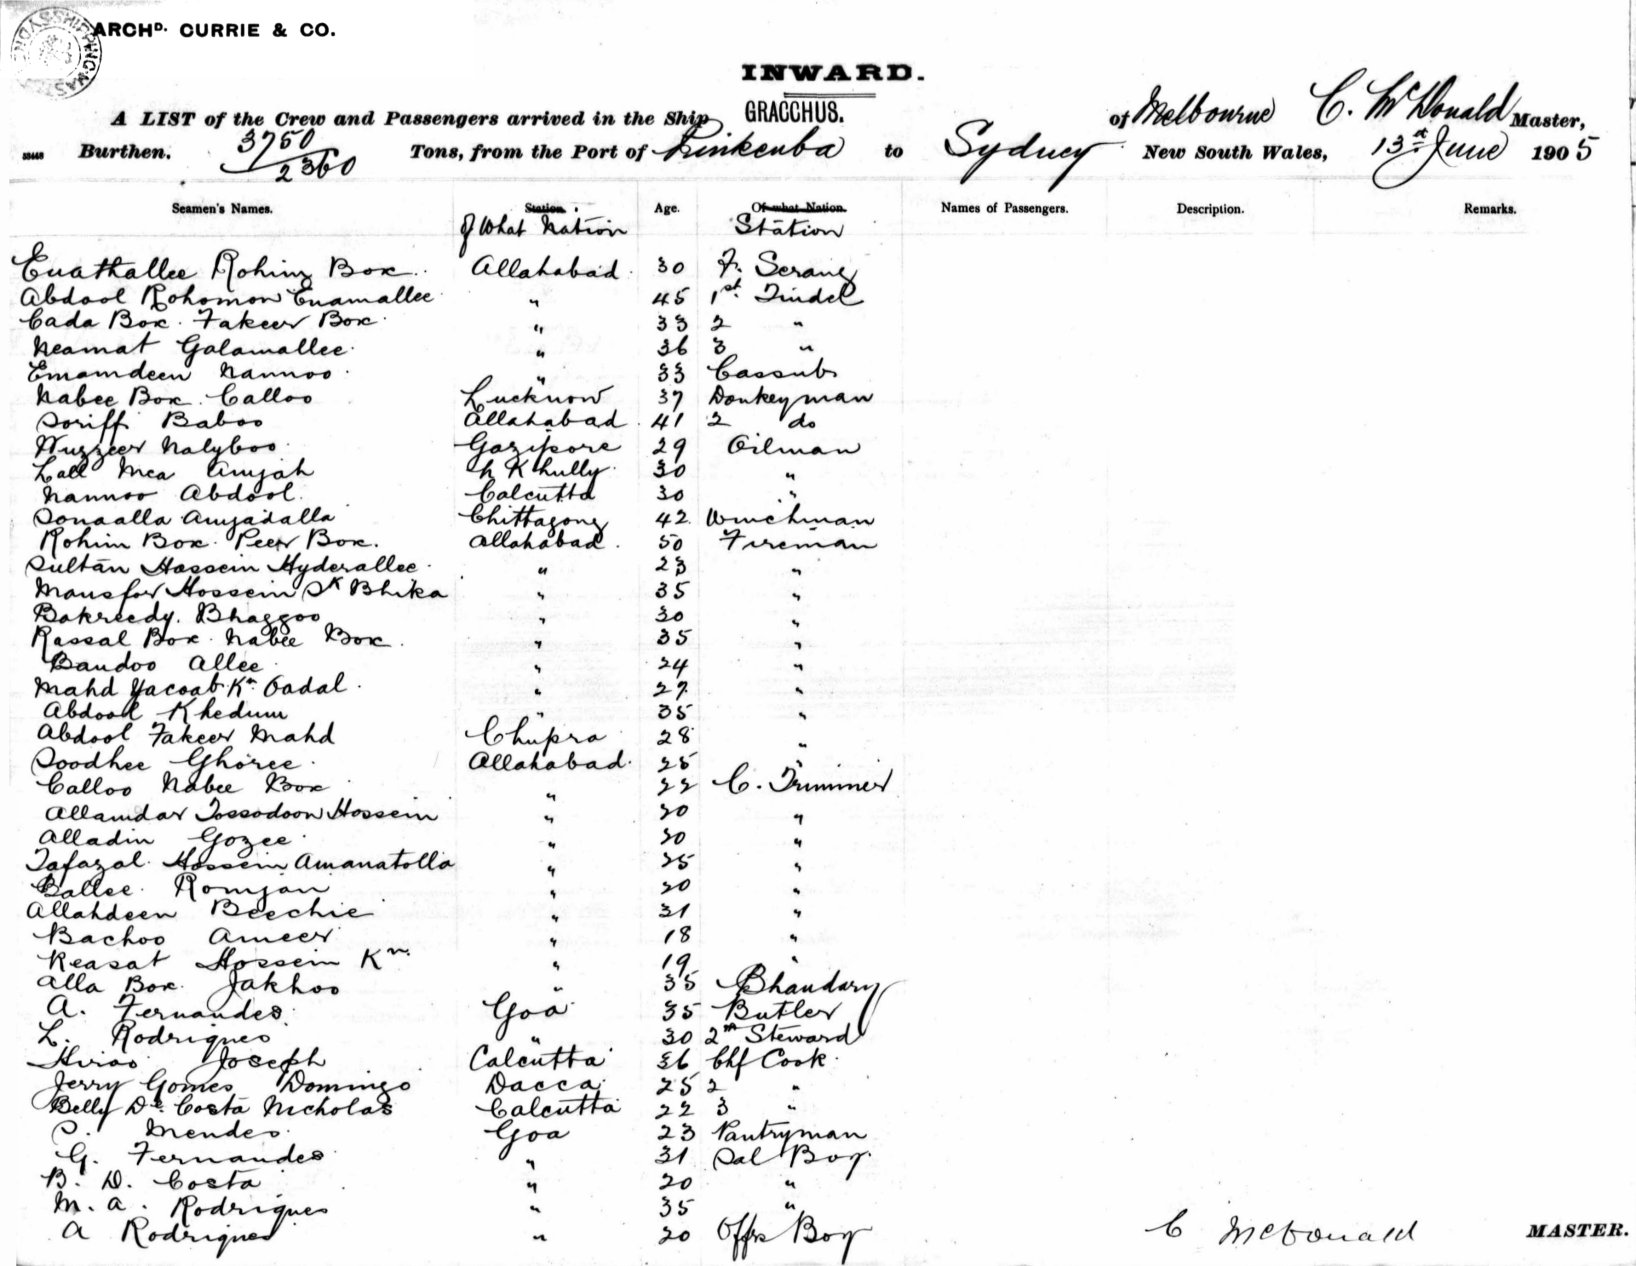 ARCHD. CURRIE & CO.
INWARD.
A LIST of the Crew and Passengers arrived in the Ship GRACCHUS. of Melbourne C. McDonald Master,
Burthen. 3750/2360 Tons, from the Port of Pinkenba to Sydney New South Wales, 13st June 1905
Seamen's Names. Station. Age. Of what Nation. Names of Passengers. Description. Remarks.
Of What Nation Station
Enathallee Rohim Box Allahabad 30 F. Serang
Abdool Rohomon Enamallee " 45 1st. Tindel
Cada Box. Fakeer Box. " 33 2 "
Neamat Golamallee. " 36 3 "
Emamdeen Nannoo. " 33 Cassub
Nabee Box. Calloo Lucknow 37 Donkeyman
Soriff Baboo Allahabad 41 2 do
Wuzzeer Nalyboo Gazipore 29 Oilman
Lall Mea Amjah N K hully 30 "
Nannoo Abdool. Calcutta 30 "
Sonaalla Amjadalla Chittagong 42 Winchman
Rohim Box. Peer Box. Allahabad. 50 Fireman
Sultan Hossein Hyderallee. " 23 "
Mausfor Hossein Sk Bhika " 35 "
Bakreedy. Bhaggoo " 30 "
Rassal Box. Nabee Box. " 35 "
Bandoo Allee " 24 "
Mahd Yacoab Kn. Oadal. " 27 "
Abdool Khedum " 35 "
Abdool Fakeer Mahd Chupra 28 "
Soodhee Ghoree. Allahabad. 25 "
Calloo Nabee Box " 22 C. Trimmer
Allamdar Tossodoon Hossein " 20 "
Alladin Gozee. " 20 "
Tafazal. Hossein Amanatolla " 25 "
Ballee. Romjan " 20 "
Allahdeen Beechie " 31 "
Bachoo Ameer " 18 "
Reasat Hossein Kn. " 19 "
Alla Box. Jakhoo " 35 Bhandary
A. Fernandes. Goa 35 Butler
L. Rodrigues " 30 2nd Steward
Joseph Calcutta 36 Chf Cook.
Jerry Gomes Domingo Dacca 25 2 "
Belly De Costa Nicholas Calcutta 22 3 "
S. Mendes. Goa 23 Pantryman
G. Fernandes " 31 Sal Boy.
B. D. Costa " 20 "
M. A. Rodrigues " 35 "
A Rodrigues " 20 Offrs Boy
C McDonald MASTER.